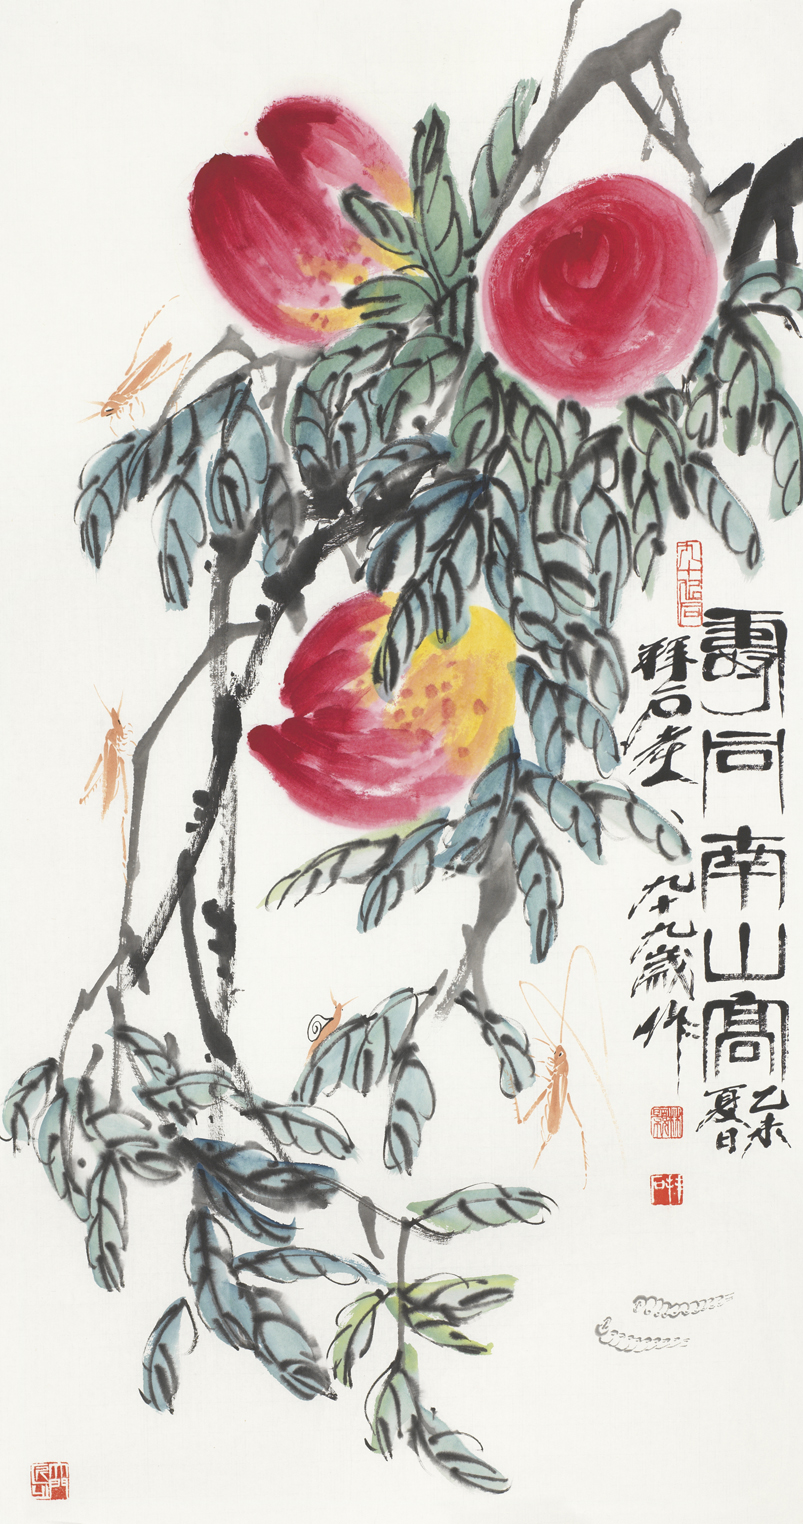 壽同南山高
乙未
夏日
拜石老人九十九歲作
拜石